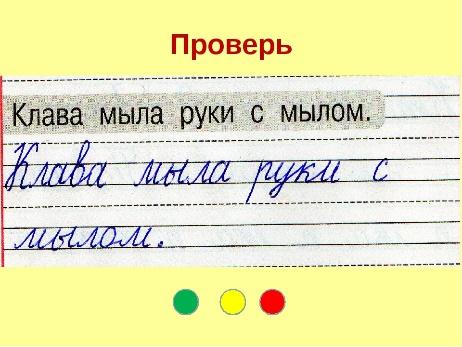 Проверь
Клава мыла руки с мылом.
Клава мыла руки с
мылом.